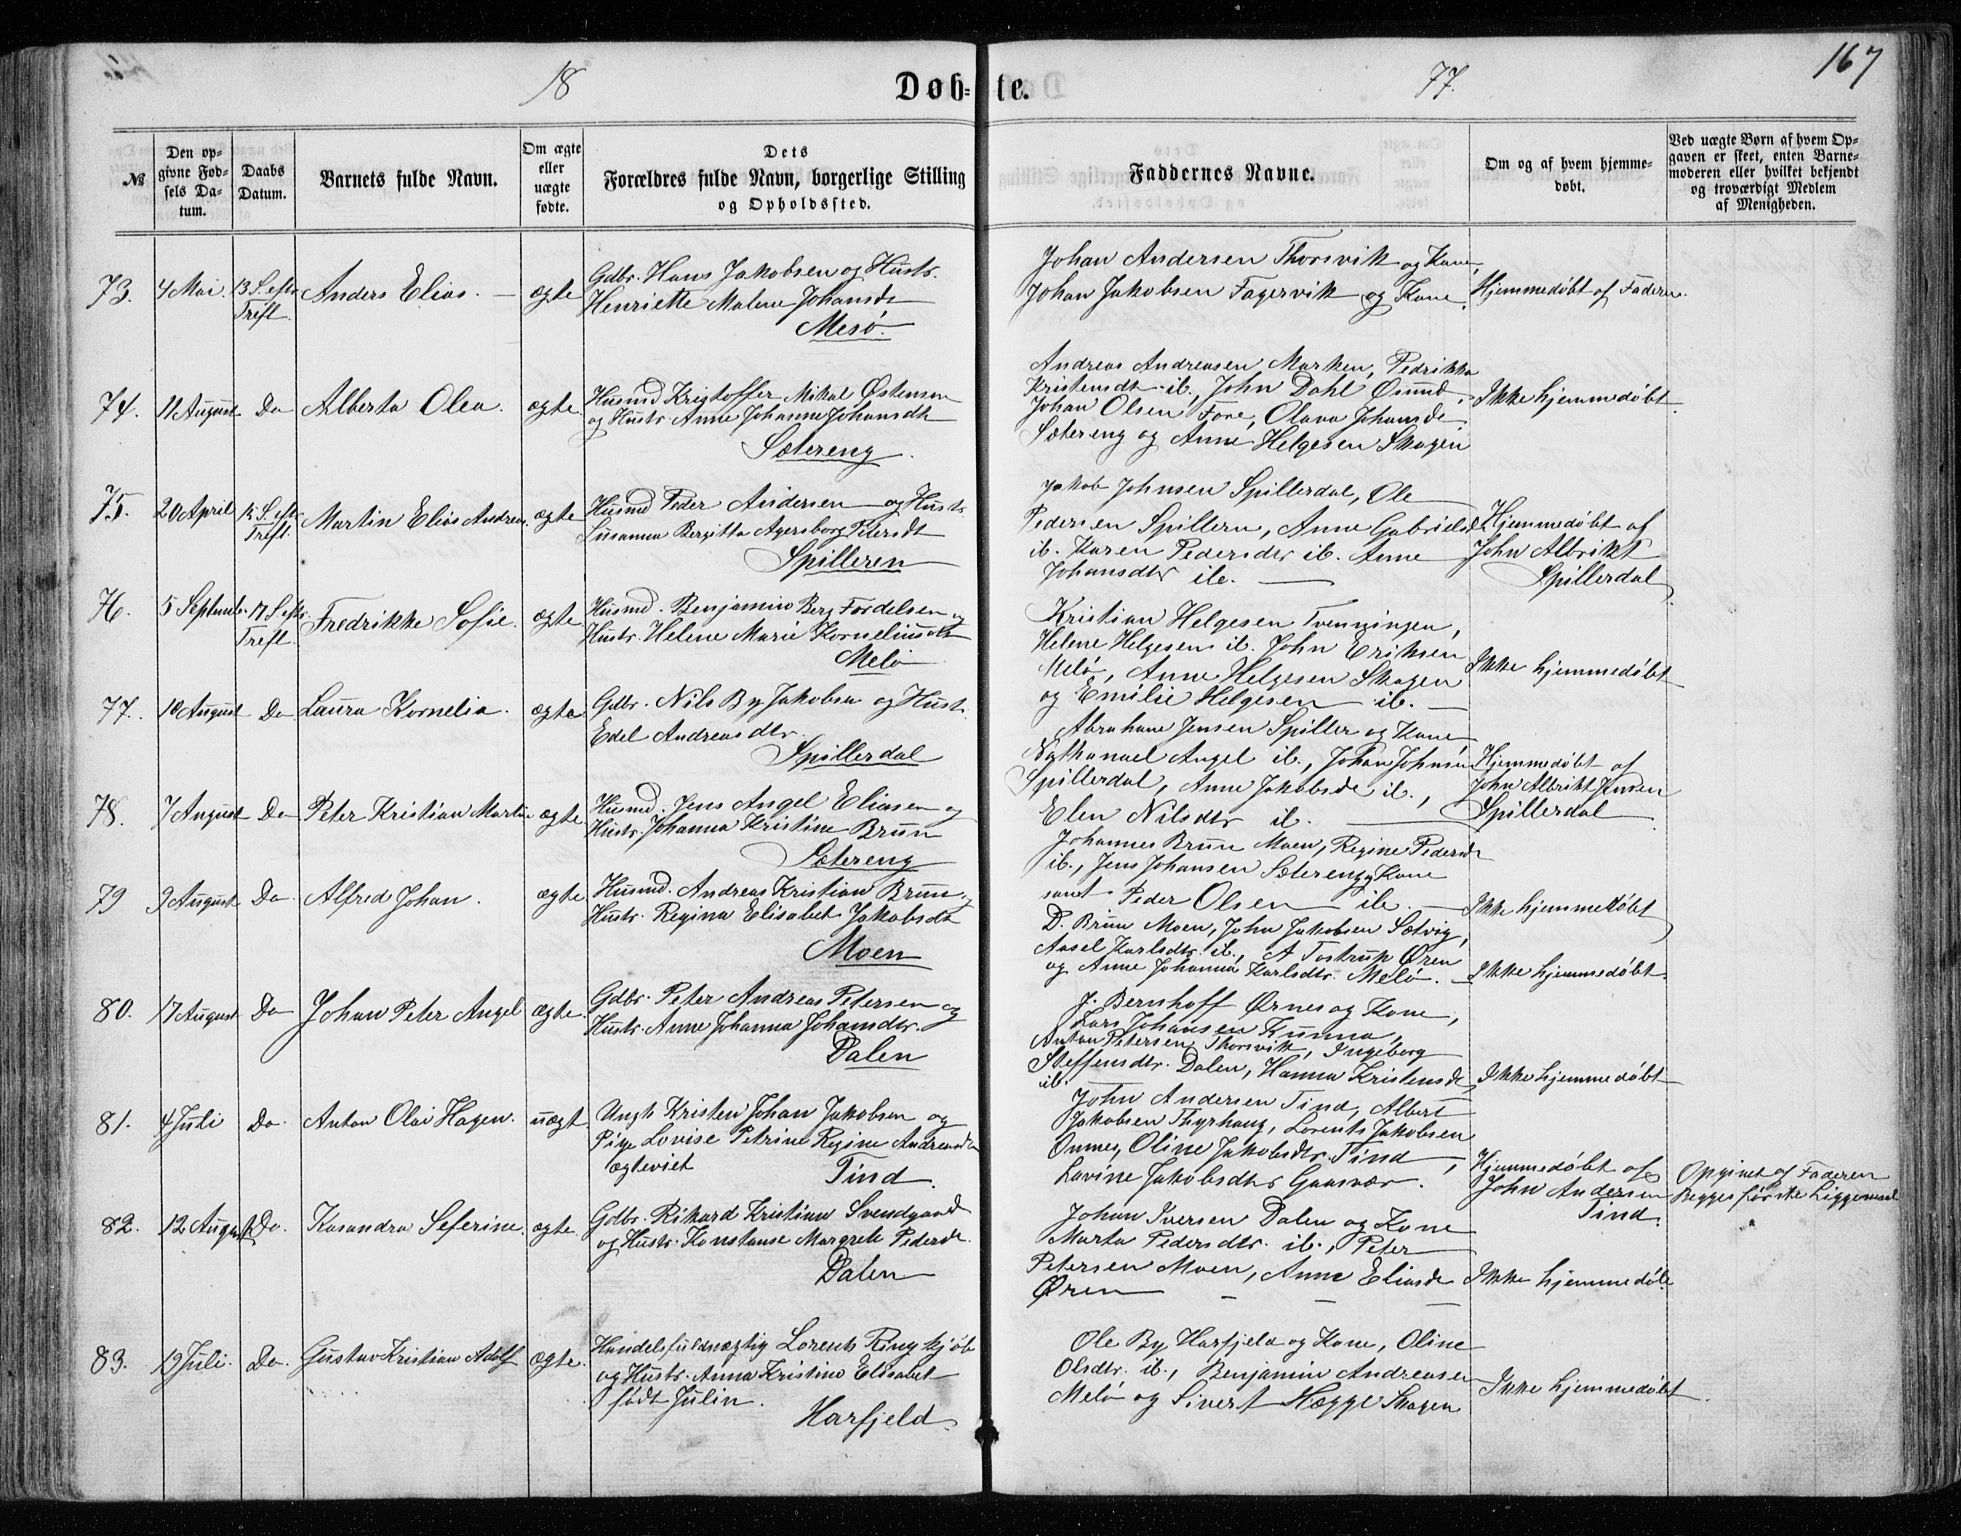 18 Døb-te. 77. 167
№
Den opgivne Fødsels Datum.
Daabs Datum.
Barnets fulde Navn.
Om ægte eller uægte fødte.
Dets Forældres fulde Navn, borgerlige Stilling og Opholdssted.
Faddernes Navne.
Om og af hvem hjemmedøbt.
Ved uægte Børn af hvem Opgaven er skeet, enten Barnemoderen eller hvilket bekjendt og troværdigt Medlem af Menigheden.
73. 4 Mai. 13 S. eftr Treft. Anders Elias. — ægte
Gdbr. Hans Jakobsen og Hustr.
Henriette Malene Johansdt
Mesø.
Johan Andersen Thorsvik og Kone,
Johan Jakobsen Fagervik og Kone.
Hjemmedøbt af Faderen.
74. 11 August Do Alberta Olea. ægte.
Husmd Kristoffer Mikal Østensen
og Hustr Anne Johanna Johansdt
Sætereng.
Andreas Andreasen Marken, Pedrikka
Kristensdt ib., John Dahl Øsund,
Johan Olsen Fore, Olava Johansdt
Sætereng og Anne Helgesen Skagen
Ikke hjemmedøbt.
75. 20 April S. eftr Trefl. Martin Elias Andreas. ægte
Husmd Peder Andersen og Hustr.
Susanna Bergitta Agersborg Petersdt
Spilleren
Jakob Johnsen Spillerdal, Ole
Pedersen Spillern, Anne Gabrielsdt
ib. Karen Pedersdtr ib. Anne
Johansdtr ib. —
Hjemmedøbt af
John Albrikt
Spillerdal
76. 5 Septembr. 17 S eftr. Trefl. Fredrikke Sofie. ægte.
Husmd. Benjamin Berg Fordelsen og
Hustr. Helene Marie Korneliusdt
Melø
Kristian Helgesen Tvenningen,
Helene Helgesen ib. John Eriksen
Melø, Anne Helgesen Skagen
og Emilie Helgesen ib. —
Ikke hjemmedøbt
77. 10 August Do Laura Kornelia. ægte
Gdbr. Nils By Jakobsen og Hustr.
Edel Andreasdtr.
Spillerdal
Abraham Jensen Spiller og Kone,
Nathanael Angel ib., Johan Johnsen
Spillerdal, Anne Jakobsdt ib.,
Elen Nilsdtr ib. —
Hjemmedøbt af
John Albrikt Jensen
Spillerdal
78. 7 August Do Peter Kristian Martin ægte
Husmd. Jens Angel Eliasen og
Hustr. Johanna Kristine Brun
Sætereng
Johannes Brun Moen, Regine Pedersdt
ib., Jens Johansen Sætereng og Kone
samt Peder Olsen ib. —
Ikke hjemmedøbt
79 9 August Do Alfred Johan. ægte
Husmd. Andreas Kristian Brun og
Hustr. Regina Elisabet Jakobsdt
Moen
D. Brun Moen, John Jakobsen Sætvig,
Aasel Karlsdtr. ib., A Tostrup Øren
og Anne Johanna Karlsdtr. Melø. —
Ikke hjemmedøbt.
80. 17 August Do Johan Peter Angel ægte.
Gdbr. Peter Andreas Petersen og
Hustr. Anne Johanna Johansdtr.
Dalen
J. Bernhoff Ørnes og Kone,
Lars Johansen Kunna,
Anton Petersen Thorsvik, Ingeborg
Steffensdtr. Dalen, Hanna Kristensdt
ib.
Ikke hjemmedøbt
81. 4 Juli Do. Anton Olai Hagen. uægt
Ungk Kristen Johan Jakobsen og
Pige Lovise Petrine Regine Andreasdt
ægteviet
Tind.
John Andersen Tind, Albert
Jakobsen Thyrhaug, Lorents Jakobsen
Onney, Oline Jakobsdtr. Tind,
Lovine Jakobsdtr Gaasvær.
Hjemmedøbt af
John Andersen
Tind.
Opgivet af Faderen
Begges første Liggemaal
82. 12 August Do. Kasandra Seferine. ægte.
Gdbr. Rikard Kristian Svendgaard
og Hustr. Konstanse Margrete Pedersdt.
Dalen
Johan Iversen Dalen og Kone
Marta Pedersdtr. ib., Peter
Petersen Moen, Anne Eliasdt
Øren — — —
Ikke hjemmedøbt.
83. 19 Juli. Do. Gustav Kristian Adolf ægte.
Handelsfuldmægtig Lorents Ringkjøb
og Hustr. Anna Kristine Elisabet
født Julin.
Harfjeld
Ole By Harfjeld og Kone, Oline
Olsdtr. ib., Benjamin Andreasen
Melø og Sivert Hegge Skagen
Ikke hjemmedøbt.